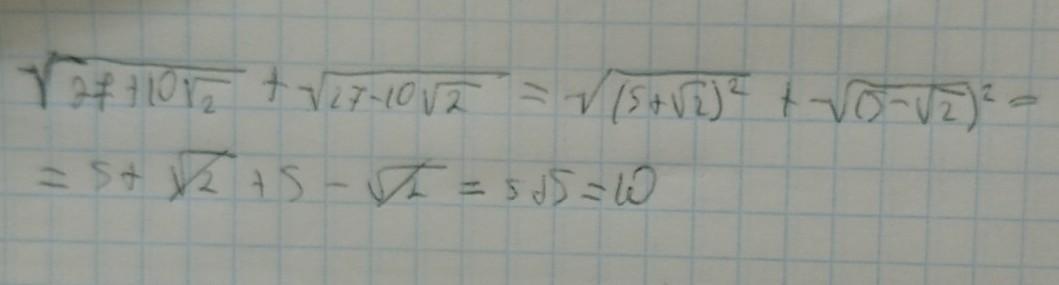 √(27+10√2) + √(27-10√2) = √((5+√2)²) + √((5-√2)²) =
= 5 + √2 + 5 - √2 = 5+5 = 10